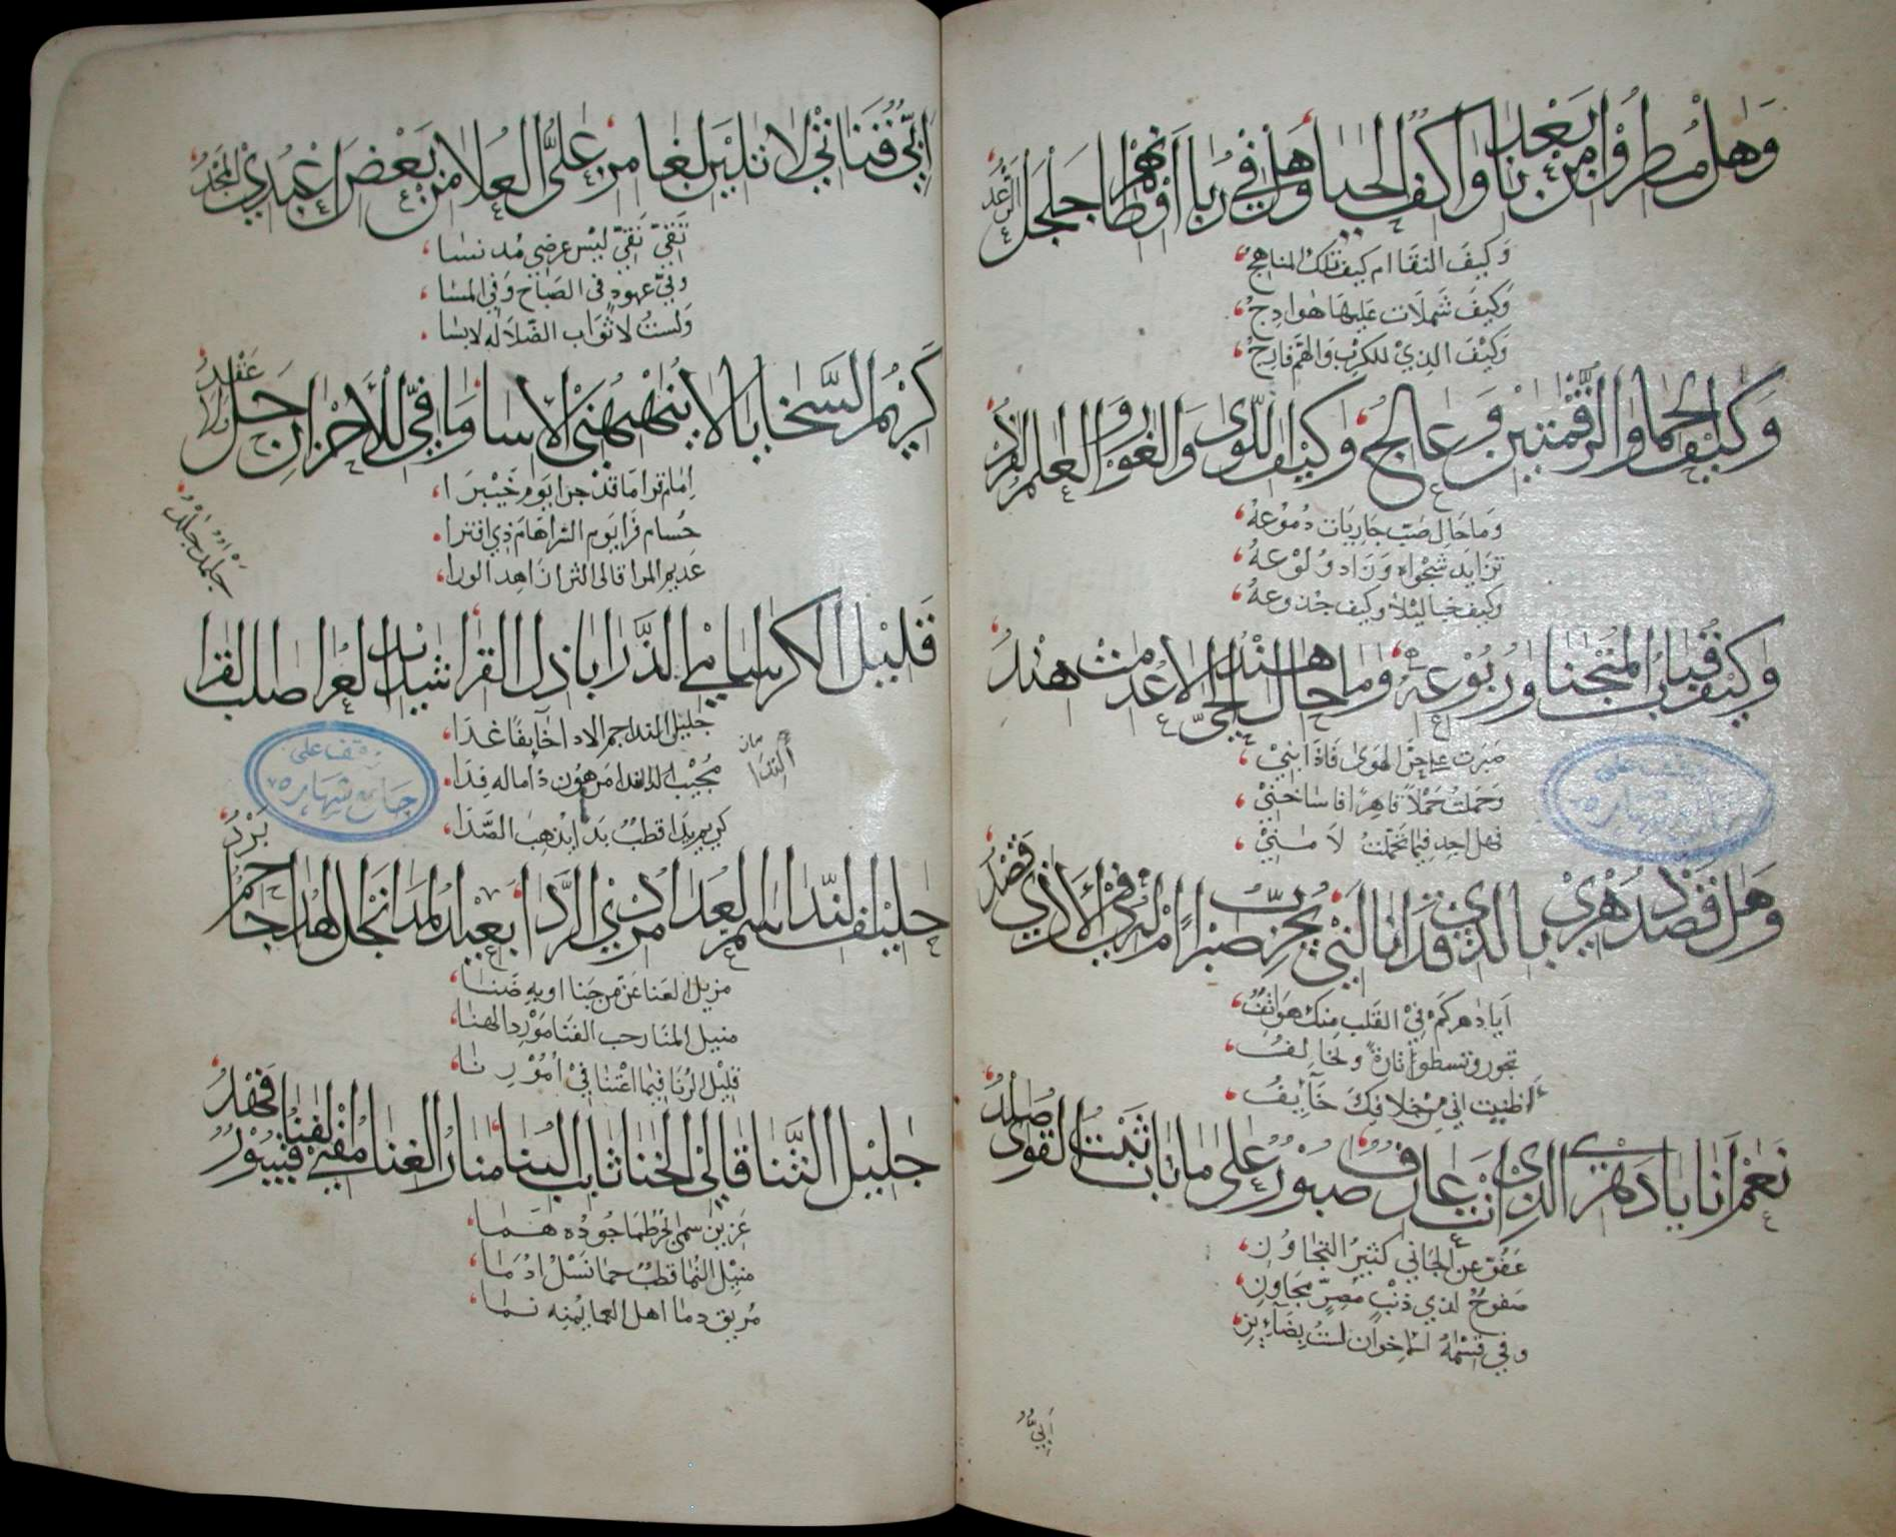 وَهل مُطروا من بَعْدنا واكف الحيا وَهل في ربا أوطانهم جَلجَلَ الرَّعدُ
وَكيفَ النقا ام كيف تلك المناهجُ
وَكيفَ شملات عَليها هوادجُ
وَكيْفَ الذيْ للكرب وَالهم فارجُ
وَكيْفَ الحما والرَّقمتين وَعالجٌ وَكيْف اللّوى وَالغَور والعلم الفردُ
وَما حَال صَبّ جَاريَات دُمُوْعهُ
تزايدَ شجْواه وَزاد وُلوْعهُ
وكيف خباليْلا وكيف جذوعهُ
وَكيْف قبابُ المنْحَنا وَرُبُوْعهُ وَما حال هند الحيّ لا عدمتْ هندُ
صَبَرت على حرَّ الهوَى فَاذَابنيْ
وَحَملتُ حَمْلاً قاهِرًا
فهل احد فيما تحمّلتُ لا مَنيْ
وَهل قصْد دَهْريْ بالذيْ قد أنالَنيْ يُجرّبُ صَبْرًا أم الذي في الأذى قصْدُ
اَيَا دَهر كم فيْ القلب منك هوَاتفُ
تجور وتسطو تارة وتخالفُ
أظنيت اني من خلافك خَآئِفُ
نَعَمْ أنا يا دَهْريْ الذيْ أنتَ عارفٌ صبُوْرٌ على ما ناب ثبْتُ القوى صَلدُ
عَفُوّ عن الجاني كثيرُ التجاوُز
صَفوحٌ لذي ذنْبٍ مُصِرٍّ
وفي قسْمة الاخوان لستُ بضَآئِز
أبيٌّ
أَبيٌّ فَنَاتيْ لا تليْن لغامزٍ عَليَّ العُلا من بَعْض أعْبُديْ المجْدُ
نَقيّ نَقيّ ليْس عرضي مُدنسَا
وفيّ عهودٍ في الصَباح وَفي المسَا
وَلستُ لاثوَاب الضّلالَه لابسَا
كَريْم السَّجايا لا يُنهْنهُنيْ الأسا وَمَا فيّ للأحْزان حَلٌّ وَلا عَقدُ
اِمام قرا ما قدْ جرا يَوم خَيْبَرَا
حُسام فرَا يوم الشرا هَام ذي افترا
عديم المرا قالى الثرا زاهد الورا
قليْل الكرا سامي الذَّرا باذل القرا شديد العرا صلب القرا
جليل الندا جم الادا خآئفًا غدَا
مُجيْب الندا من هوْن ذا ماله فِدَا
كريم يدا قطبٌ بدا يذهب الصَّدَا
حليْف الندا سم العدا من ذي الرَّدا بعيْد المدا نجل الهدا جاحم بَرْدُ
مزيل العَنا عَن من جَنا اوبه ضَنا
منيل المنَا رحب الفنَا مَوْرد الهنَا
قليْل الونَا فيما اعْتنا فيْ أمُوْرنَا
جليْل الثنا قالى الخنا ثابت البنا منار الغنا مفْني القنا
عَزيز سمى بحْر طما جوده هَما
منيْل النما قطبٌ حما نسْل ادْمَا
مُريق دما اهل العما يمنه نمَا
وقف على
جامع شهاره